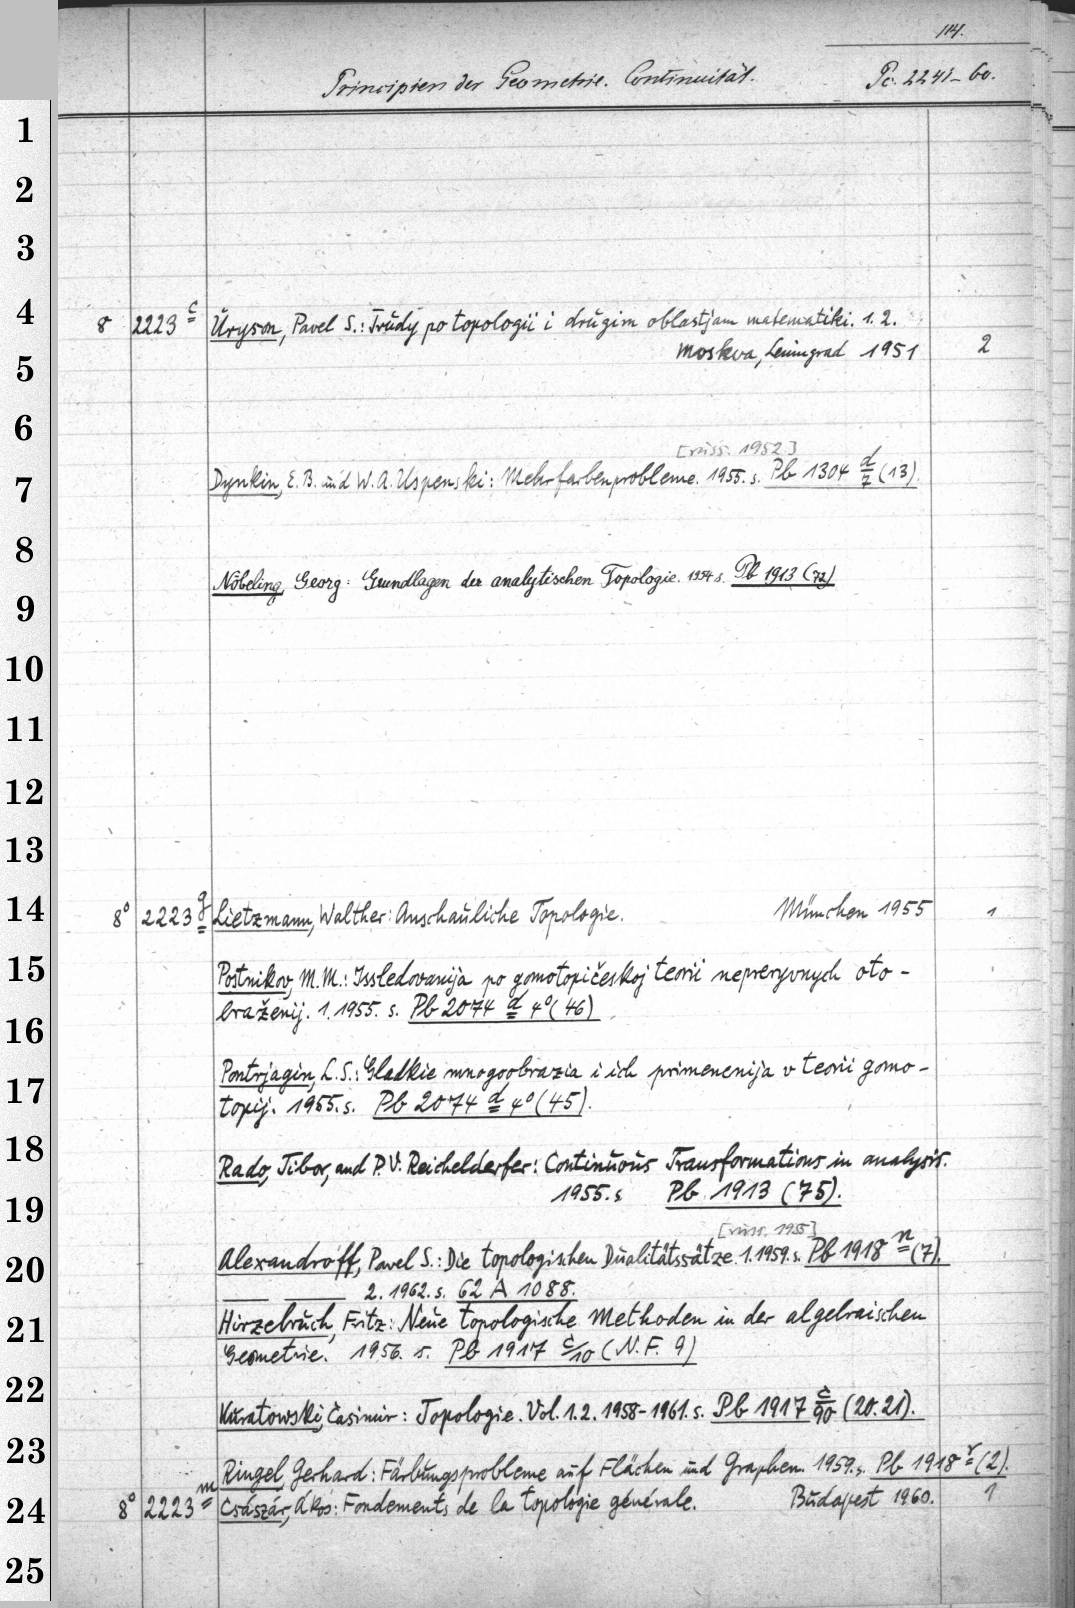 114.
Principien der Geometrie. Continuität. Pc. 2241-60.
1
2
3
4
8 2223 c Uryson, Pavel S.: Trudy po topologii i drugim oblastjam matematiki. 1. 2.
Moskva, Leningrad 1951 2
5
6
[russ. 1952]
7
Dynkin, E. B. und W. A. Uspenski: Mehrfarbenprobleme. 1955. s. Pb 1304 d/7 (13).
8
Nöbeling, Georg: Grundlagen der analytischen Topologie. 1954 s. Pb 1913 (72)
9
10
11
12
13
14
8° 2223 g Lietzmann, Walther: Anschauliche Topologie. München 1955 1
15
Postnikov, M. M.: Issledovanija po gomotopičeskoj teorii nepreryvnych oto-
braženij. 1. 1955. s. Pb 2074 d 4° (46)
16
Pontrjagin, L. S.: Gladkie mnogoobrazia i ich primenenija v teorii gomo-
17
topij. 1955. s. Pb 2074 d 4° (45).
18
Rado, Tibor, and P. V. Reichelderfer: Continuous Transformations in analysis.
1955. s Pb 1913 (75).
19
[russ. 1955]
20
Alexandroff, Pavel S.: Die topologischen Dualitätssätze. 1. 1959. s. Pb 1918 n (7).
2. 1962. s. 62 A 1088.
21
Hirzebruch, Fritz: Neue topologische Methoden in der algebraischen
Geometrie. 1956. s. Pb 1917 c/10 (N. F. 9)
22
Kuratowski, Casimir: Topologie. Vol. 1. 2. 1958-1961. s. Pb 1917 c/90 (20. 21).
23
Ringel, Gerhard: Färbungsprobleme auf Flächen und Graphen. 1959. s. Pb 1918 r (2).
24
8° 2223 m Császár, Ákos: Fondements de la topologie générale. Budapest 1960. 1
25